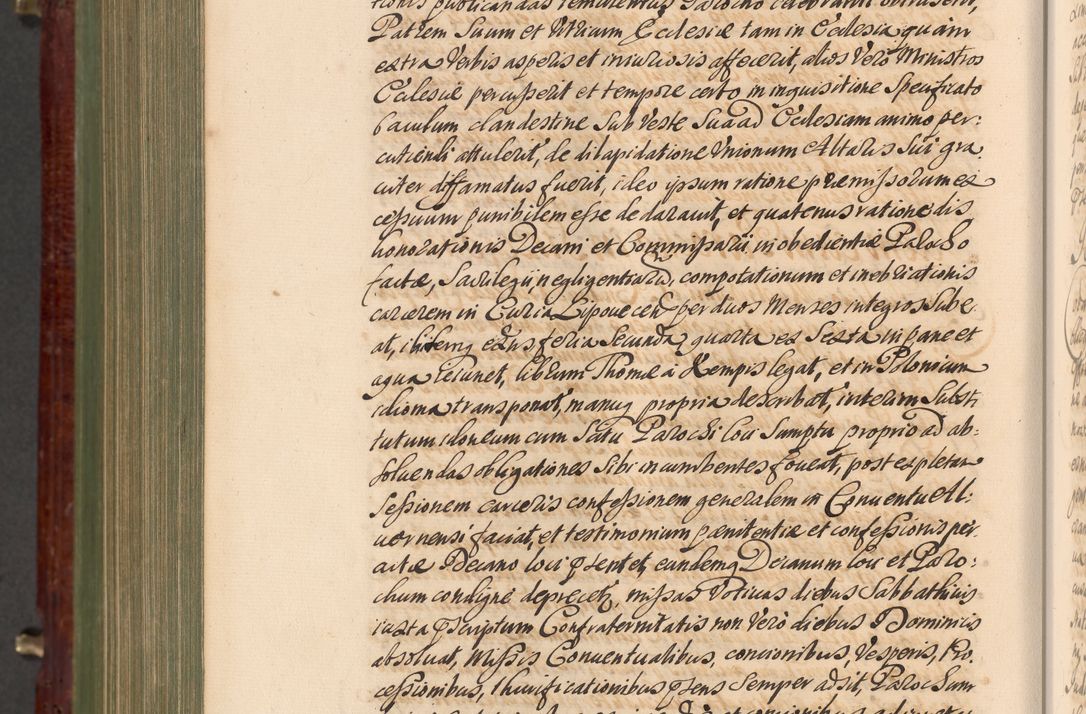 tionis publicandas remittentus Parocho celebranti obtruserit,
Patrem Suum et Vitricum Ecclesiæ tam in Ecclesia quàm
extra Verbis asperis et iniuriosis affecerit, alios Verò Ministros
Ecclesiæ percusserit et tempore certo in inquisitione Specificato
baculum clandestine Sub Veste Sua ad Ecclesiam animo per:
cutiendi attulerit, de dilapidatione Unionum Altaris Sui gra
viter diffamatus fuerit, ideo ipsum ratione præmissorum ex
cessuum punibilem esse declaravit, et quatenus ratione dis
honorationis Decani et Commissarii inobedientiæ Parocho
factæ, Sacrilegii, negligentiarum, compotationum et inebriationis
carcerem in Curia Lipovecen per duos Menses integros Sube
at, ibidemq exns feria Secunda, quarta ex Sexta in pane et
aqua ieiunet, librum Thomæ à Kempis legat, et in Polonicum
idioma transponat, manuq propria describat, interim Substi
tutum idoneum cum Scitu Parochi loci Sumptu proprio ad ab:
solvendas obligationes Sibi incumbentes foveat, post expletam
Sessionem carceris confessionem generalem in Conventu Al:
vernensi faciat, et testimonium pænitentiæ et confessionis per
actæ Decano loci pñtet, eundemq Decanum loci et Paro:
chum condignè deprecet, missas Votivas diebus Sabbathivis
iuxta pscriptum Confraternitatis non Verò diebus Dominicis
absolvat, Missis Conventualibus, concionibus, Vesperis, Pro
cessionibus, thurificationibus pñsens Semper adsit, Parochum